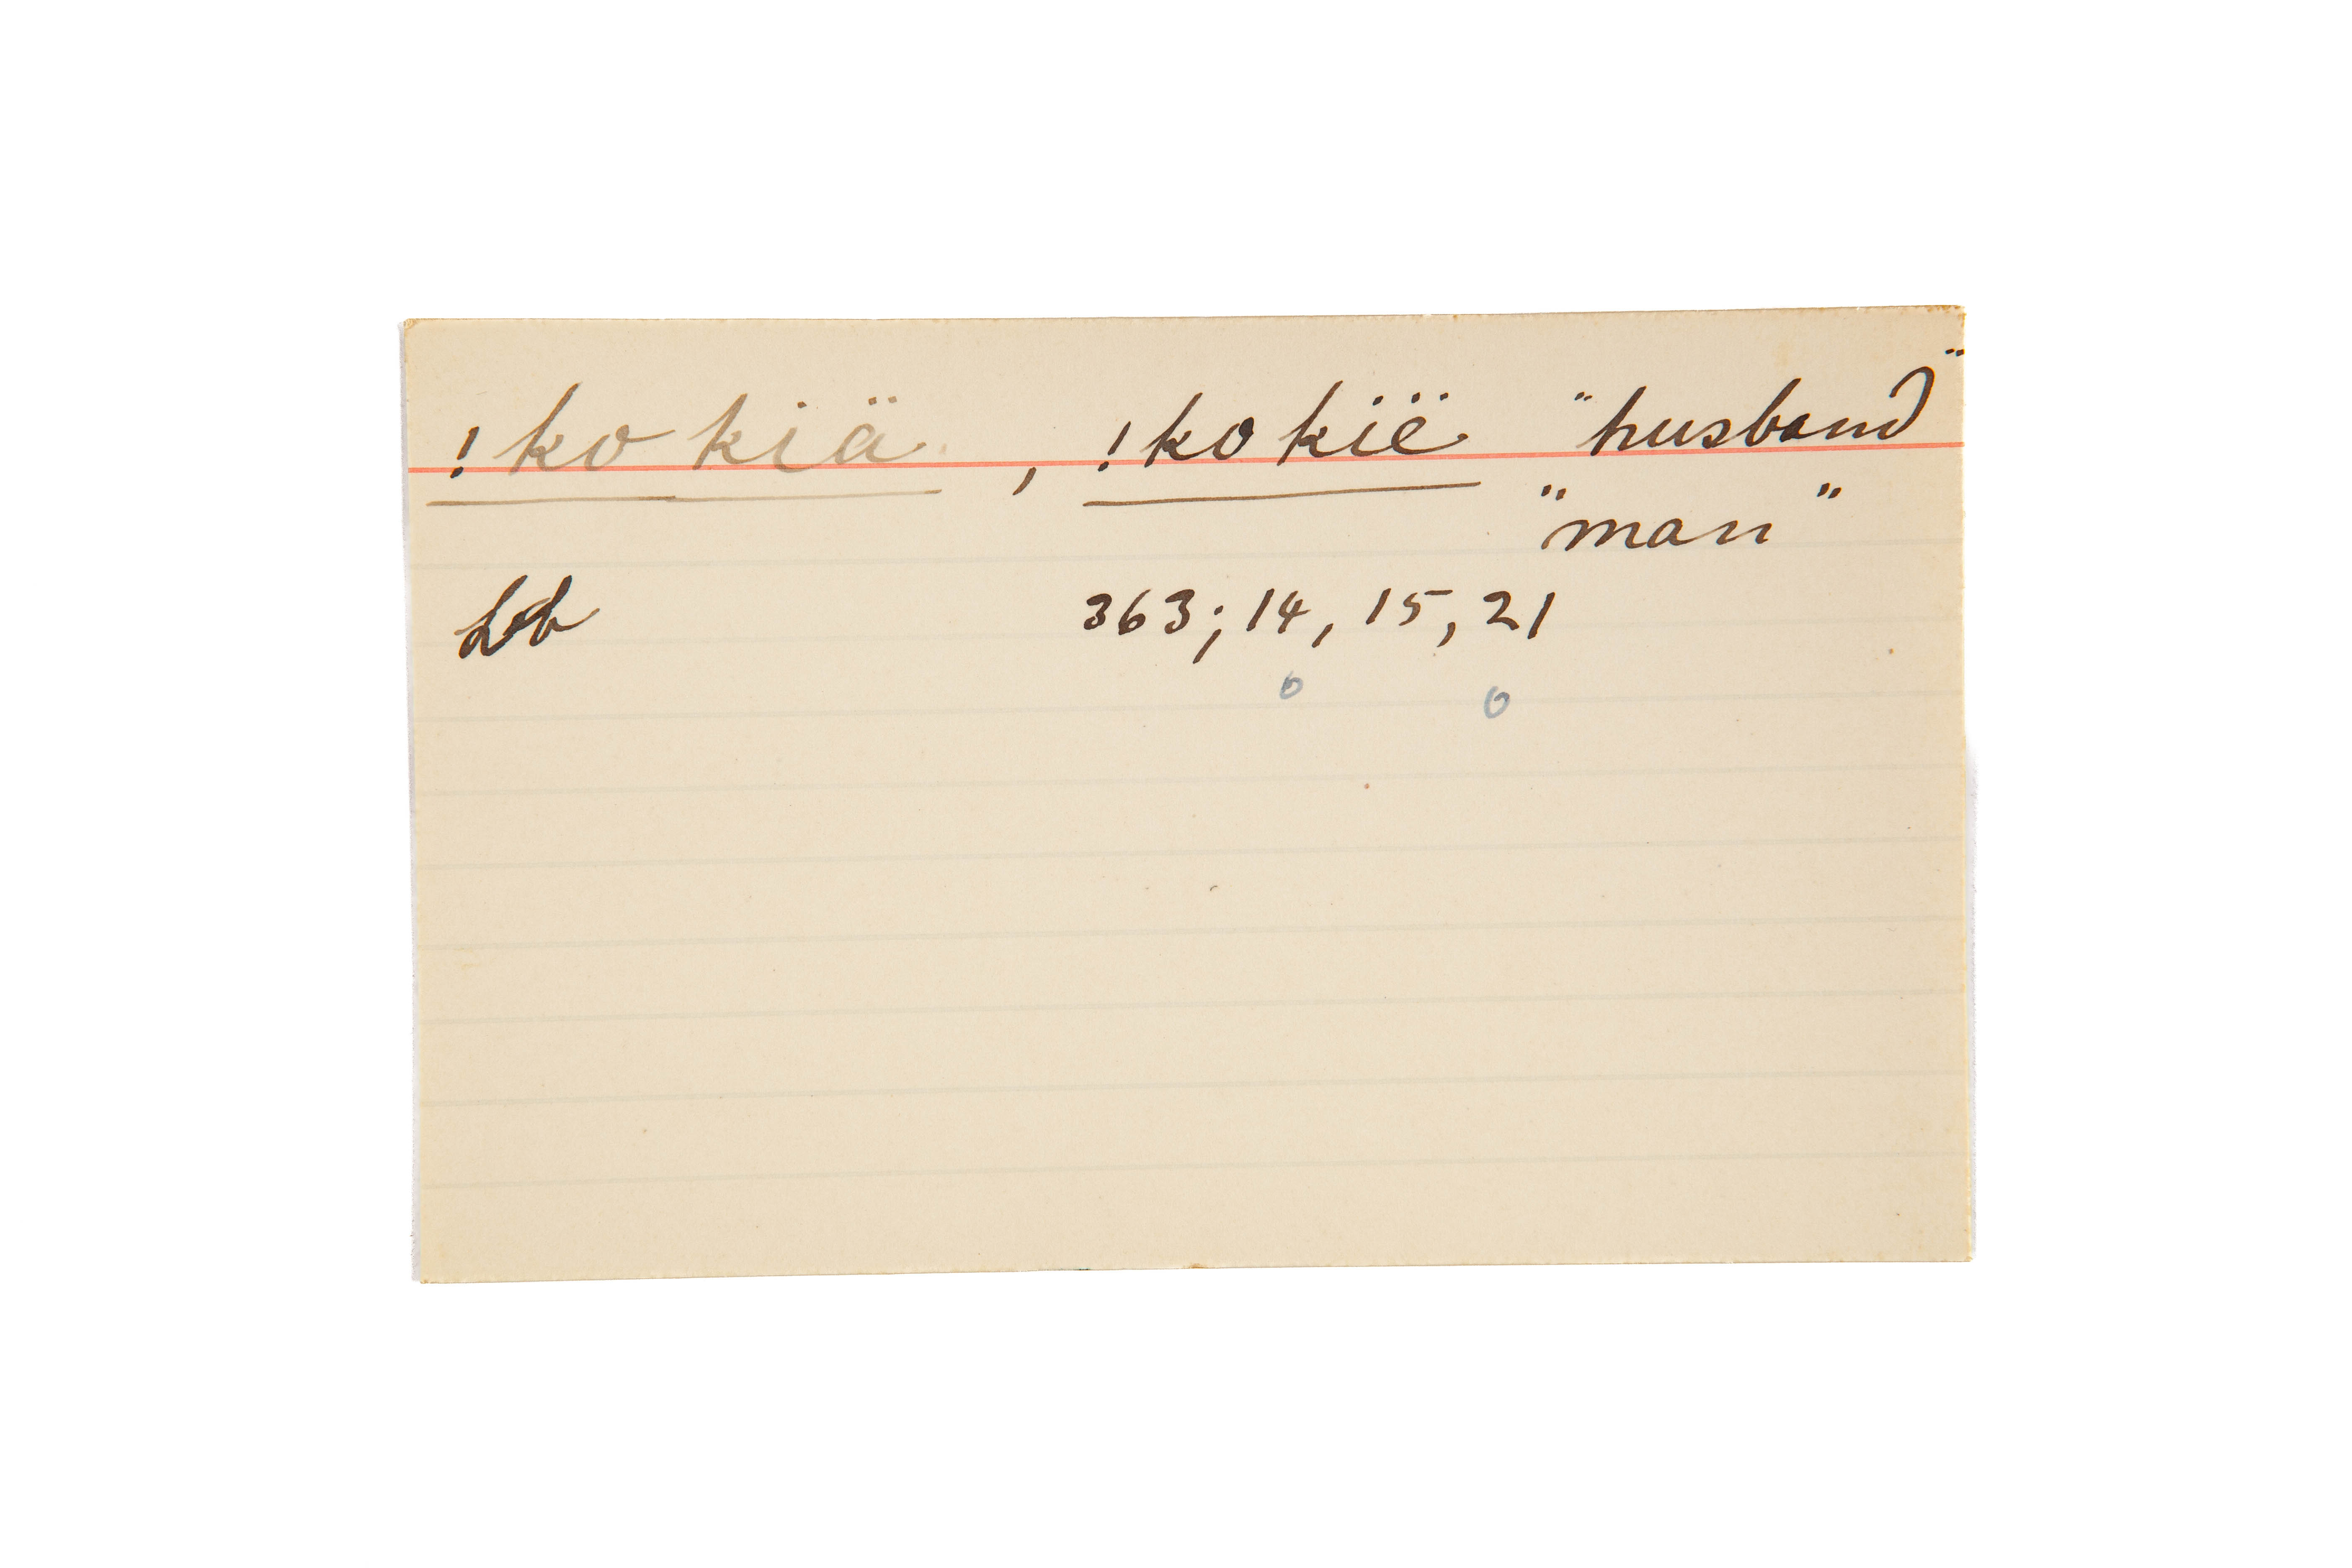 !kokiä, !kokïë "husband"
"man"
Lb 363; 14, 15, 21
o o